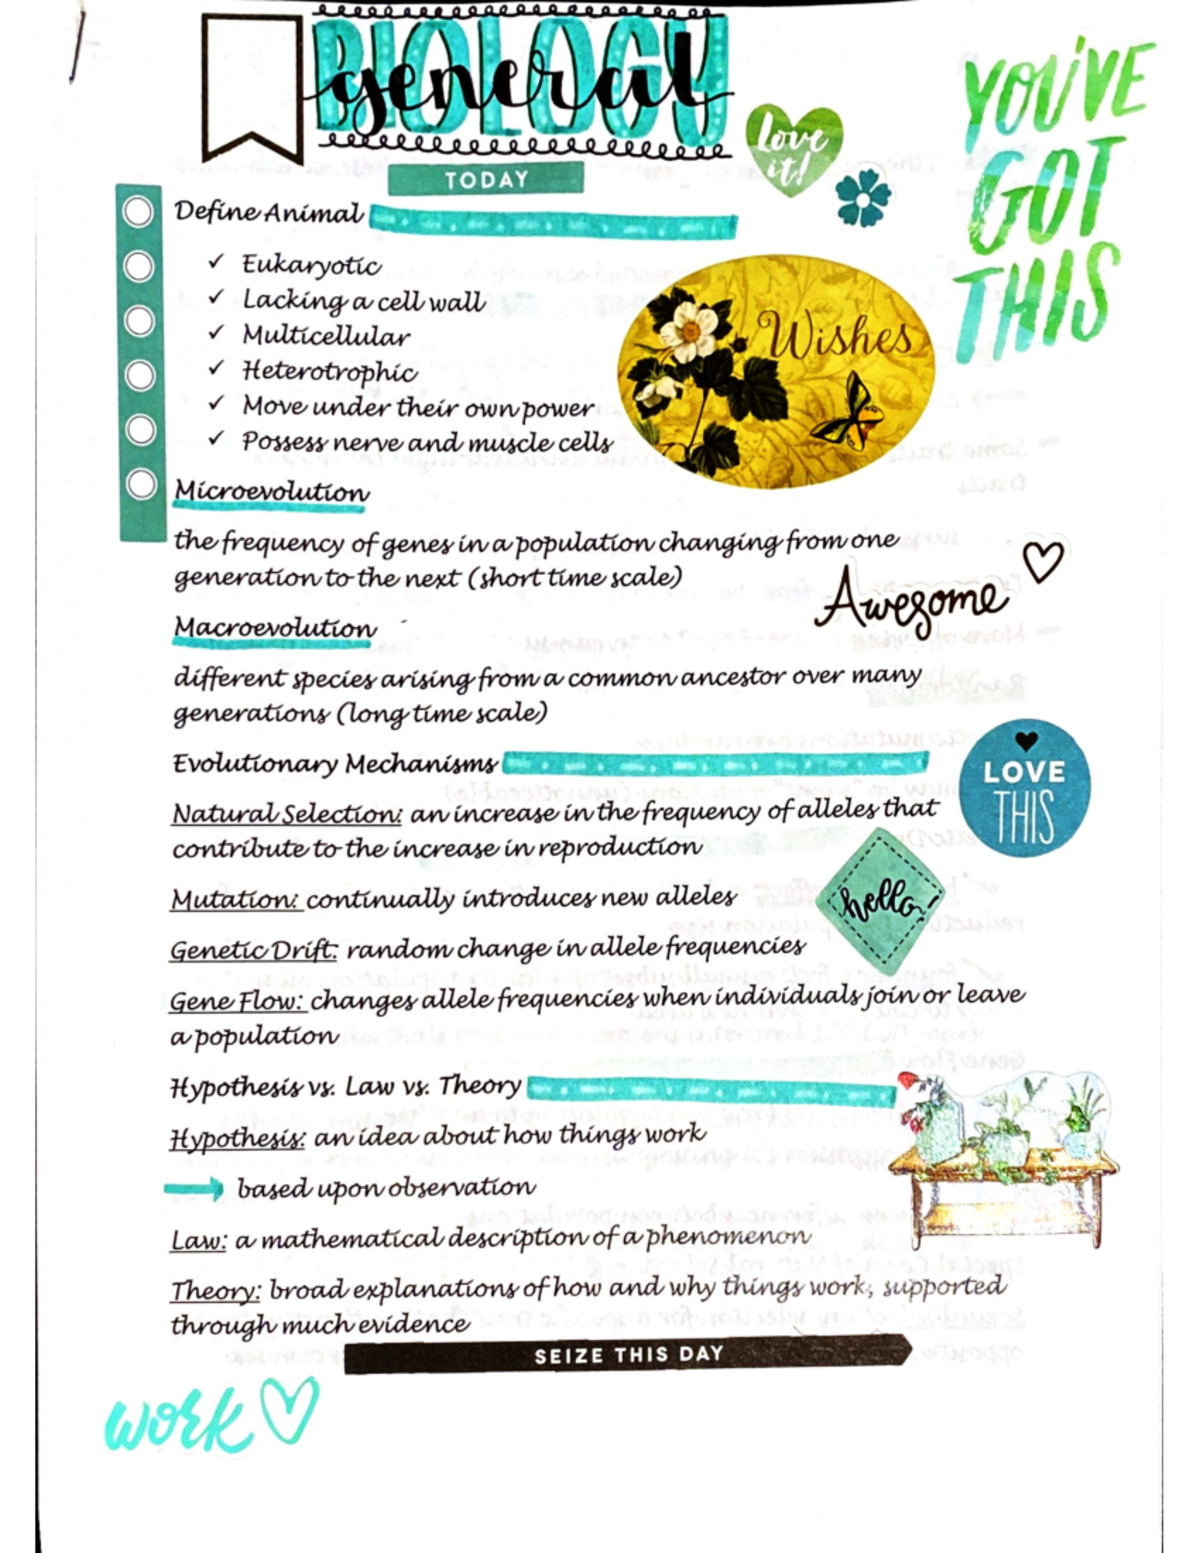 BIOLOGY
general
YOU'VE
GOT
THIS
Love
it!
TODAY
Define Animal
✓ Eukaryotic
✓ Lacking a cell wall
✓ Multicellular
✓ Heterotrophic
✓ Move under their own power
✓ Possess nerve and muscle cells
Wishes
Microevolution
the frequency of genes in a population changing from one
generation to the next (short time scale)
Awesome
Macroevolution
different species arising from a common ancestor over many
generations (long time scale)
Evolutionary Mechanisms
LOVE
THIS
Natural Selection: an increase in the frequency of alleles that
contribute to the increase in reproduction
hello!
Mutation: continually introduces new alleles
Genetic Drift: random change in allele frequencies
Gene Flow: changes allele frequencies when individuals join or leave
a population
Hypothesis vs. Law vs. Theory
Hypothesis: an idea about how things work
→ based upon observation
Law: a mathematical description of a phenomenon
Theory: broad explanations of how and why things work, supported
through much evidence
SEIZE THIS DAY
work